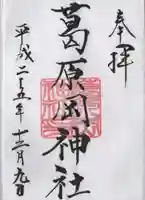 奉拝
葛原岡神社
平成二十五年十二月九日